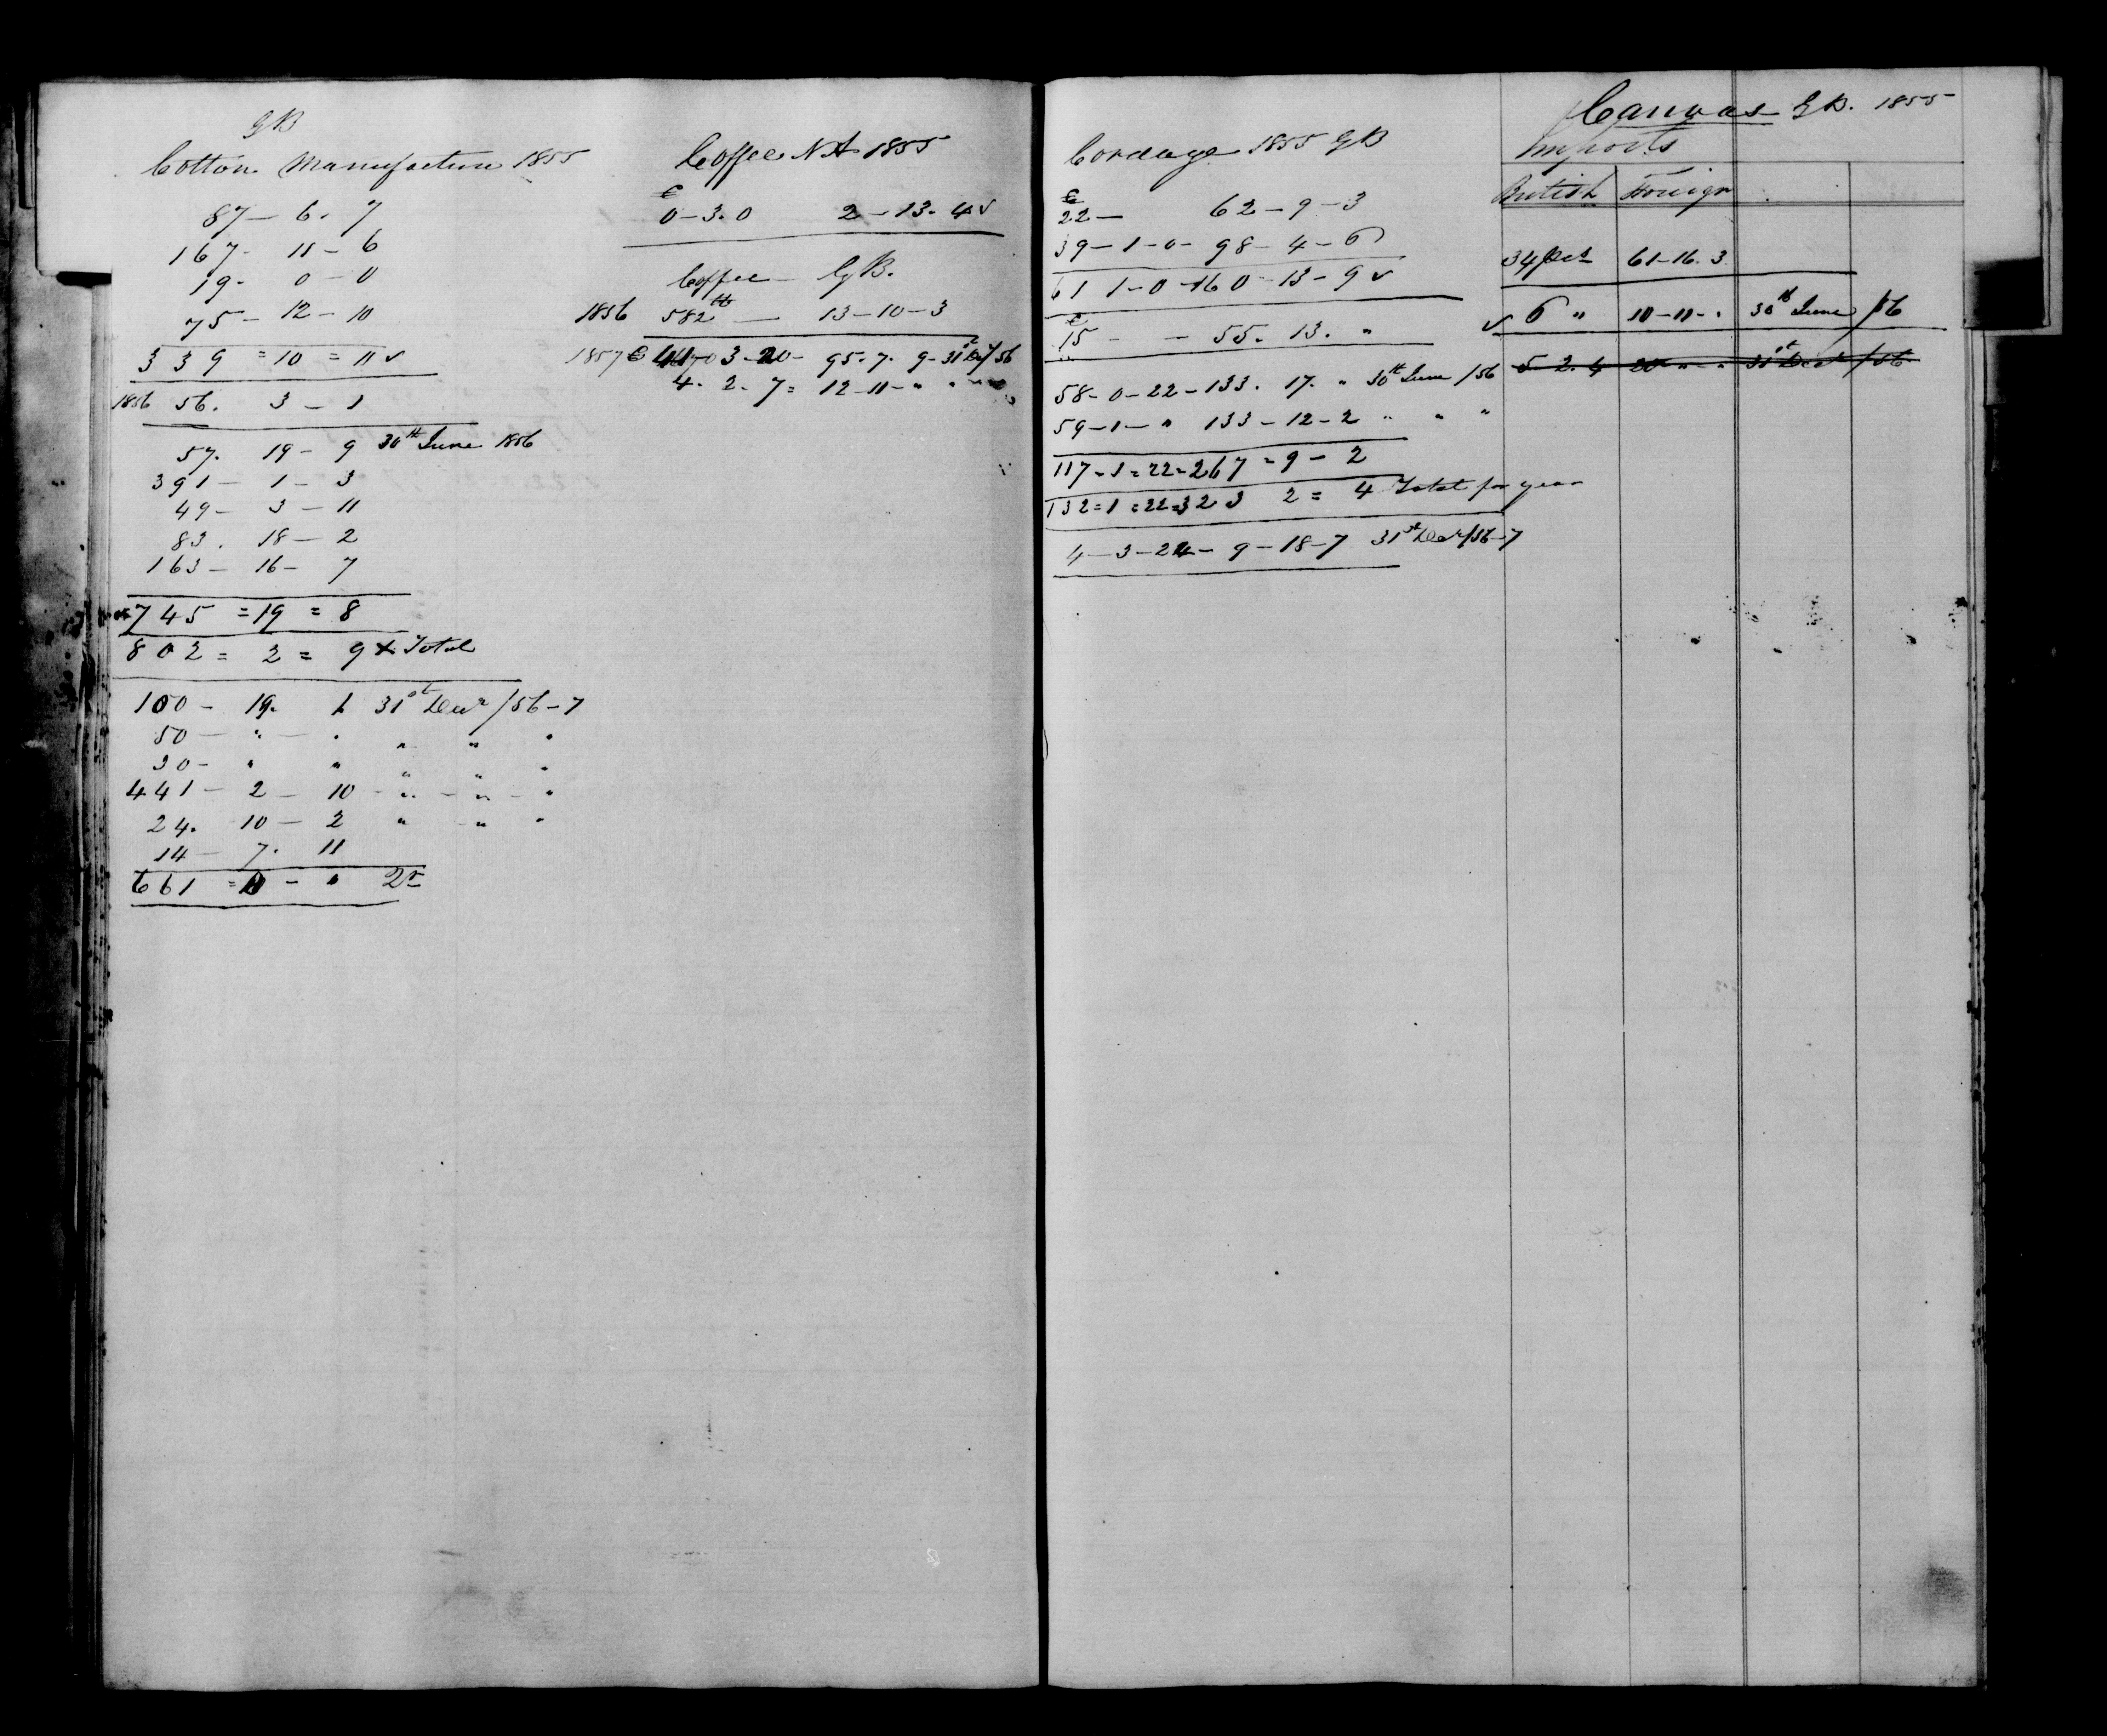 GB
Cotton Manufacture 1855
87 - 6 - 7
167 - 11 - 6
19 - 0 - 0
75 - 12 - 10
339 = 10 = 11 ✓
1856 56. 3 - 1
57. 19 - 9 30th June 1856
391 - 1 - 3
49 - 3 - 11
83. 18 - 2
163 - 16 - 7
745 = 19 = 8
802 = 2 = 9 x Total
100 - 19. 1 31st Decr /56-7
50 - " - " " " "
30 - " " " " "
441 - 2 - 10 - " - " - "
24. 10 - 2 " - " "
14 - 7. 11
661 = 0 - "
Coffee NA 1855
C
0 - 3. 0 2 - 13. 4 ✓
Coffee GB.
1856 582 lb — 13 - 10 - 3
1857 C 3 - 20 - 95. 7. 9 - 31st Decr/56
4. 2. 7 = 12 - 11 - " " "
Cordage 1855 GB
C
22 — 62 - 9 - 3
39 - 1 - 0 - 98 - 4 - 6
61 1 - 0 - 160 - 13 - 9 ✓
C
15 - - 55. 13. "
58 - 0 - 22 - 133. 17. " 30th June /56
59 - 1 - " 133 - 12 - 2 " " "
117 - 1 = 22 = 267 = 9 - 2
132 = 1 = 22 = 323 2 = 4 Total for year
4 - 3 - 24 - 9 - 18 - 7 31st Decr/56-7
Canvas GB. 1855
Imports
British Foreign
34 61 - 16. 3
✓ 6 " 10 - 11 - " 30th June /56
5. 2. 4 20 " " 31st Decr /56